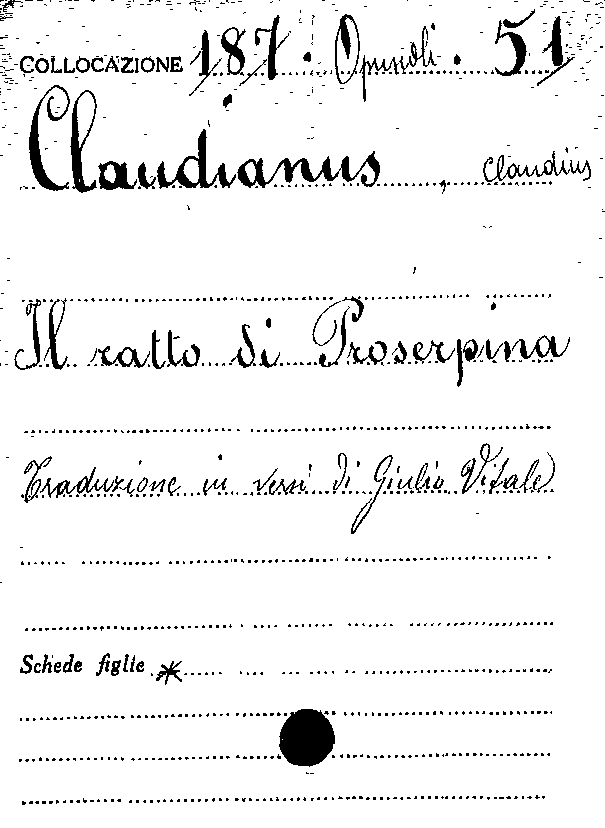 COLLOCAZIONE 187. Opuscoli. 51
Claudianus, Claudius
Il ratto di Proserpina
Traduzione in versi di Giulio Vitale
Schede figlie *